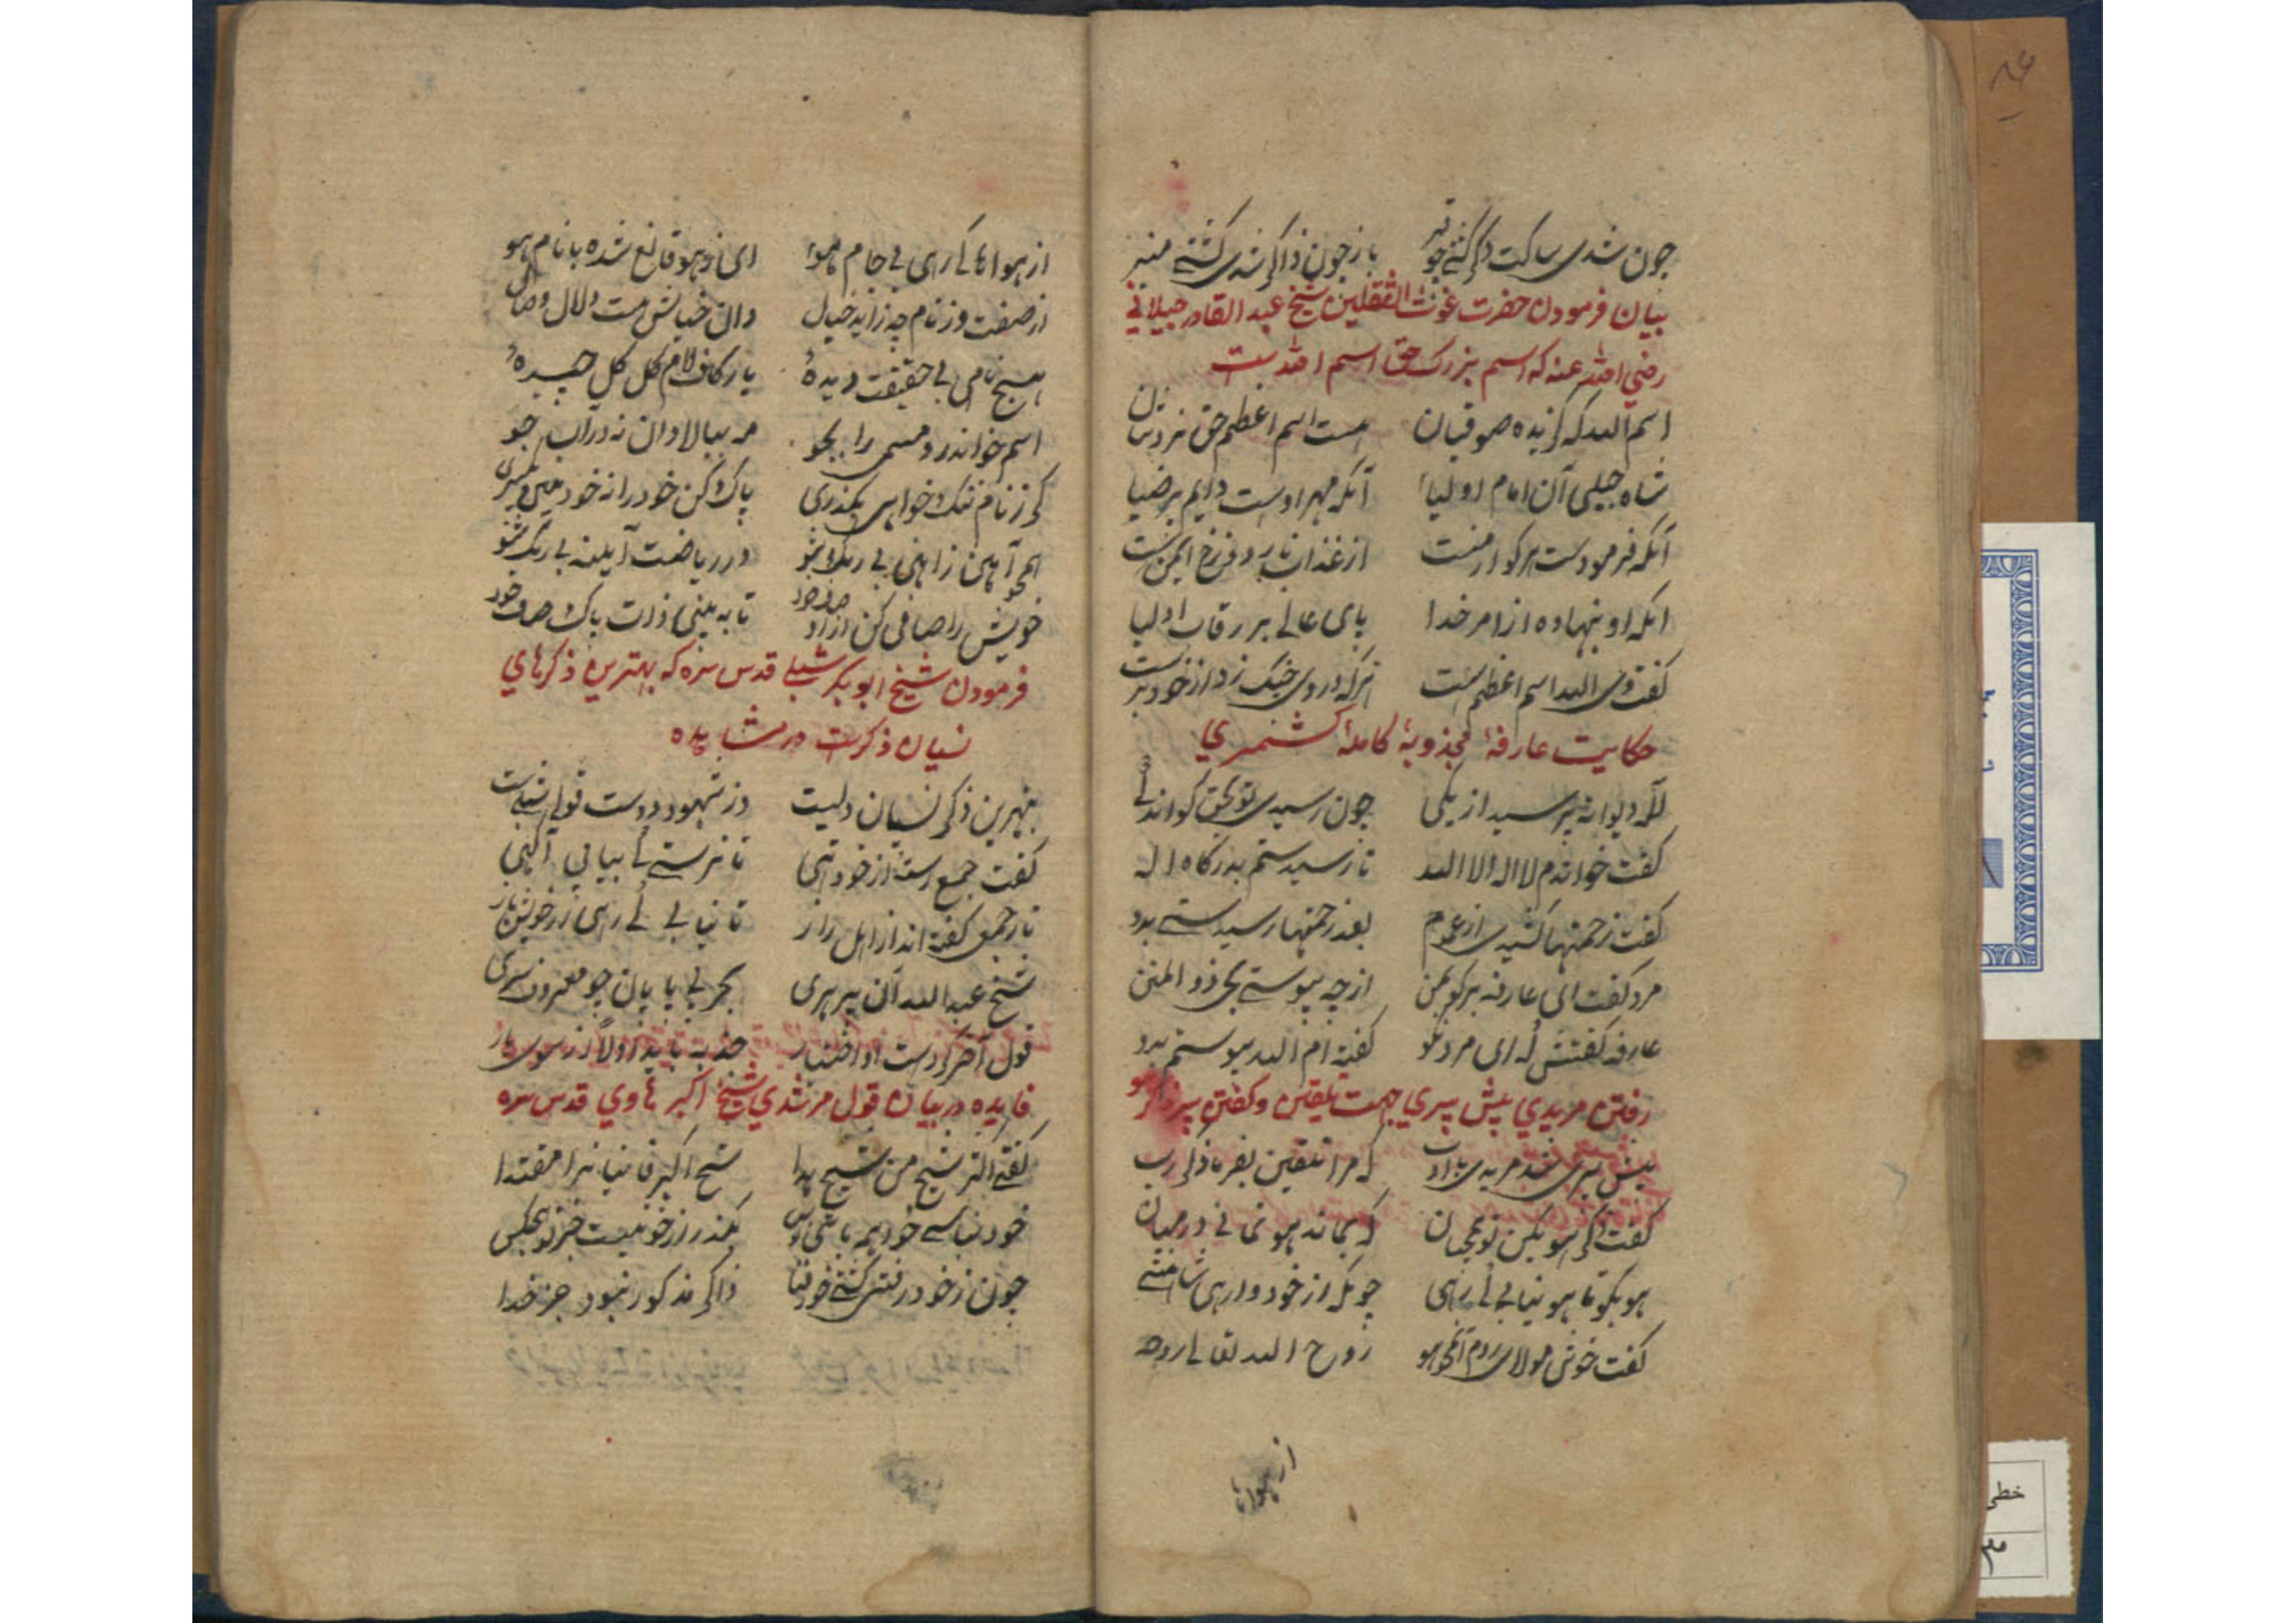 چون شدی ساکت دگر گشتی چو قیر باز چون ذاکر شدی گشتی منیر
بیان فرمودن حضرت غوث الثقلین شیخ عبد القادر جیلانی
رضی الله عنه که اسم بزرک حق اسم الله ست
اسم الله که گزیده صوفیان هست اسم اعظم حق نزدشان
شاه جیلی آن امام اولیا آنکه مهر اوست دایم بر ضیا
آنکه فرمودست هر کو از منست از عذاب نار دوزخ ایمن ست
انکه او بنهاده از امر خدا پای عالی بر رقاب اولیا
کفت وی الله اسم اعظم ست هرکه در وی چنک زد از خود برست
حکایت عارفهٔ مجذوبهٔ کاملهٔ کشمیری
للّه دیوانه پرسید از یکی چون رسیدی تو بحق کو اندکی
کفت خواندم لا اله الا الله تا رسیدستم بدرکاه اله
کفت زحمتها کشیدی از عموم بعد زحمتها رسیدستی بدو
مرد کفت ای عارفه برکو بمن از چه پیوستی بحق ذو المنن
عارفه کفتش که ای مرد نکو کفته ام الله پیوستم بدو
رفتن مریدی پیش پیری جهت تلقین و کفتن پیر ذکر هو
پیش پیری شد مریدی با ادب که مرا تلقین بفرما ذکر رب
کفت ذکر هو بکن تو هر زمان که بماند هو نمانی در میان
هو بکو تا هو نیابی کی رهی چونکه از خود وارهی شاهنشهی
کفت خوش مولای روم روح الله تعالی روحه
از هواها
از هواها کی رهی بی جام هو ای ز هو قانع شده با نام هو
از صفت وز نام چه زاید خیال وان خیالش هست دلال وصال
هیچ نامی بی حقیقت دیدهٔ یا ز کاف لام کل کل چیدهٔ
اسم خواندی رو مسمی را بجو مه ببالا دان نه در آب جو
کر ز نام ننک خواهی بکذری پاک کن خود را ز خود هین یکسری
همچو آهن ز اهنی بی رنک شو در ریاضت آینه بی زنک شو
خویش را صافی کن از اوصاف خود تا به بینی ذات پاک صاف خود
فرمودن شیخ ابو بکر شبلی قدس سره که بهترین ذکرهای
نسیان ذکرست در مشاهده
بهترین ذکر نسیان دلیست در شهود دوست قول شبلیست
کفت جمع رسته از خود تهی تا نرستی کی بیابی آکهی
باز جمعی کفته اند از اهل راز تا نیابی کی رهی از خویش باز
شیخ عبد الله آن پیر هری بحر بی پایان چو معروف سری
قول آخر کردست او اختیار جذبه باید اولا از سوی یار
فایده در بیان قول مرشدی شیخ اکبر هاوی قدس سره
کفت اکثر شیخ من شیخ هدا شیخ اکبر فانیانرا مقتدا
بکذر از خود نیست جز تو هیچکس
چون ز خود رفتی کشتی خود فنا ذاکر مذکور نبود جز خدا
خطی